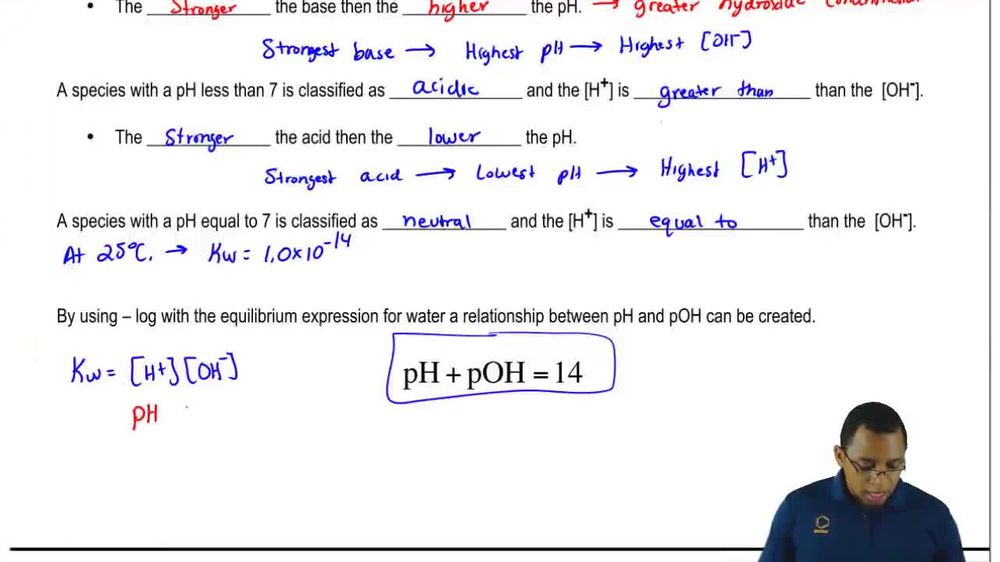 • The Stronger the base then the higher the pH. → greater hydroxide concentration
Strongest base → Highest pH → Highest [OH⁻]
A species with a pH less than 7 is classified as acidic and the [H⁺] is greater than than the [OH⁻].
• The Stronger the acid then the lower the pH.
Strongest acid → Lowest pH → Highest [H⁺]
A species with a pH equal to 7 is classified as neutral and the [H⁺] is equal to than the [OH⁻].
At 25°C. → Kw = 1.0x10⁻¹⁴
By using – log with the equilibrium expression for water a relationship between pH and pOH can be created.
Kw = [H⁺][OH⁻] pH + pOH = 14
pH